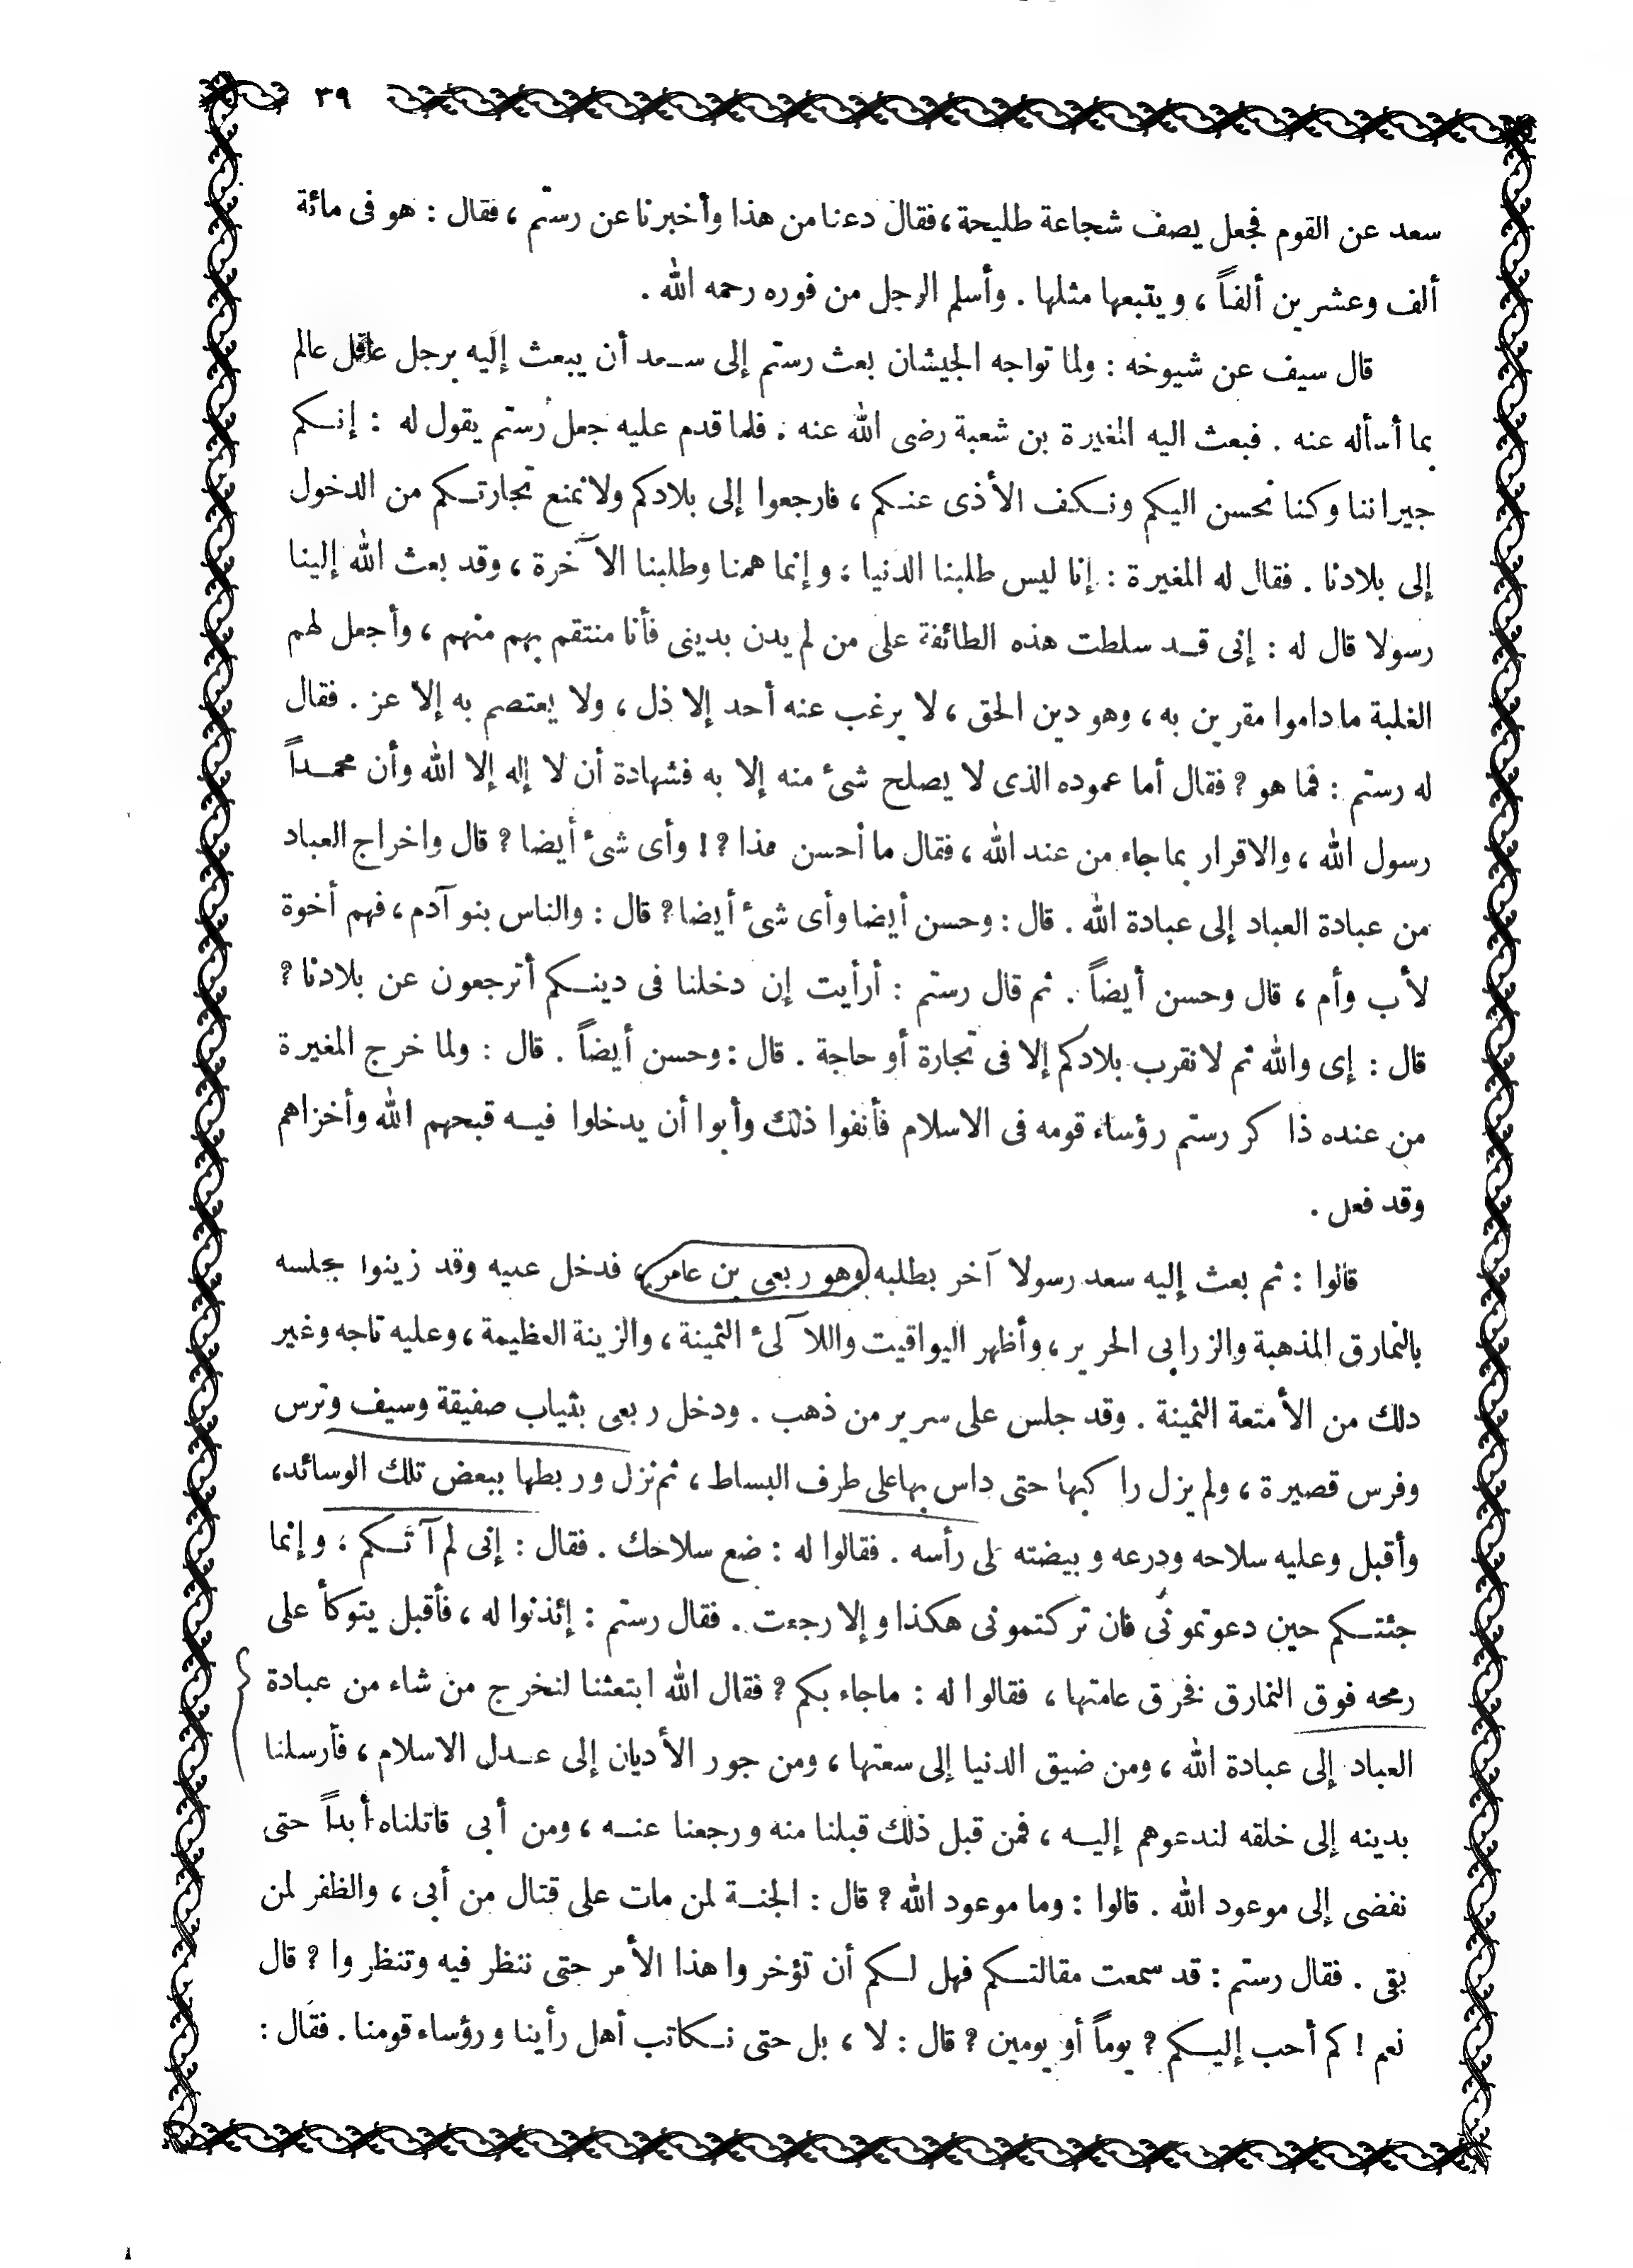 ٣٩
سعد عن القوم فجعل يصف شجاعة طليحة، فقال دعنا من هذا وأخبرنا عن رستم ، فقال : هو فى مائة
ألف وعشرين ألفاً ، ويتبعها مثلها . وأسلم الرجل من فوره رحمه الله .
قال سيف عن شيوخه : ولما تواجه الجيشان بعث رستم إلى سعد أن يبعث إليه برجل عاقل عالم
بما أسأله عنه . فبعث اليه المغيرة بن شعبة رضى الله عنه . فلما قدم عليه جعل رستم يقول له : إنكم
جيراننا وكنا نحسن اليكم ونكف الأذى عنكم ، فارجعوا إلى بلادكم ولا نمنع تجارتكم من الدخول
إلى بلادنا . فقال له المغيرة : إنا ليس طلبنا الدنيا ، وإنما همنا وطلبنا الآخرة ، وقد بعث الله إلينا
رسولا قال له : إنى قد سلطت هذه الطائفة على من لم يدن بدينى فأنا منتقم بهم منهم ، وأجعل لهم
الغلبة ما داموا مقرين به ، وهو دين الحق ، لا يرغب عنه أحد إلا ذل ، ولا يعتصم به إلا عز . فقال
له رستم : فما هو ? فقال أما عموده الذى لا يصلح شىء منه إلا به فشهادة أن لا إله إلا الله وأن محمداً
رسول الله ، والاقرار بما جاء من عند الله ، فقال ما أحسن هذا ?! وأى شىء أيضا ? قال واخراج العباد
من عبادة العباد إلى عبادة الله . قال : وحسن أيضا وأى شىء أيضا ? قال : والناس بنو آدم ، فهم أخوة
لأب وأم ، قال وحسن أيضاً . ثم قال رستم : أرأيت إن دخلنا فى دينكم أترجعون عن بلادنا ?
قال : إى والله ثم لا نقرب بلادكم إلا فى تجارة أو حاجة . قال : وحسن أيضاً . قال : ولما خرج المغيرة
من عنده ذاكر رستم رؤساء قومه فى الاسلام فأنفوا ذلك وأبوا أن يدخلوا فيه قبحهم الله وأخزاهم
وقد فعل .
قالوا : ثم بعث إليه سعد رسولا آخر بطلبه وهو ربعى بن عامر ، فدخل عليه وقد زينوا مجلسه
بالنمارق المذهبة والزرابى الحرير ، وأظهر اليواقيت واللآلىء الثمينة ، والزينة العظيمة ، وعليه تاجه وغير
ذلك من الأمتعة الثمينة . وقد جلس على سرير من ذهب . ودخل ربعى بثياب صفيقة وسيف وترس
وفرس قصيرة ، ولم يزل راكبها حتى داس بها على طرف البساط ، ثم نزل وربطها ببعض تلك الوسائد،
وأقبل وعليه سلاحه ودرعه وبيضته على رأسه . فقالوا له : ضع سلاحك . فقال : إنى لم آتكم ، وإنما
جئتكم حين دعوتمونى فان تركتمونى هكذا وإلا رجعت . فقال رستم : إئذنوا له ، فأقبل يتوكأ على
رمحه فوق النمارق فخرق عامتها ، فقالوا له : ما جاء بكم ? فقال الله ابتعثنا لنخرج من شاء من عبادة
العباد إلى عبادة الله ، ومن ضيق الدنيا إلى سعتها ، ومن جور الأديان إلى عدل الاسلام ، فأرسلنا
بدينه إلى خلقه لندعوهم إليه ، فمن قبل ذلك قبلنا منه ورجعنا عنه ، ومن أبى قاتلناه أبداً حتى
نفضى إلى موعود الله . قالوا : وما موعود الله ? قال : الجنة لمن مات على قتال من أبى ، والظفر لمن
بقى . فقال رستم : قد سمعت مقالتكم فهل لكم أن تؤخروا هذا الأمر حتى ننظر فيه وتنظروا ? قال
نعم ! كم أحب إليكم ? يوماً أو يومين ? قال : لا ، بل حتى نكاتب أهل رأينا ورؤساء قومنا . فقال :